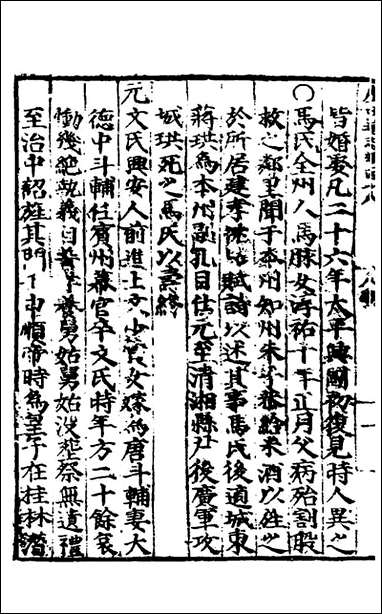 皆婚娶凡二十六年太平興國初復見時人異之
○馬氏全州人馬脉女淳祐十年正月父病殆割股
救之鄰里聞于本州知州朱給米酒以旌之
於所居建孝坊賦詩以述其事馬氏後適城東
蔣珙為本州孔目仕元至清湘縣尸後廣軍攻
城珙死之馬氏以壽終
元文氏興安人前進士文女嫁為唐斗輔妻大
德中斗輔任賓州幕官卒文氏時年方二十餘哀
慟幾絶執義自養舅姑舅姑沒葬祭無遺禮
至治中紹旌其門順帝時為子在桂林潛